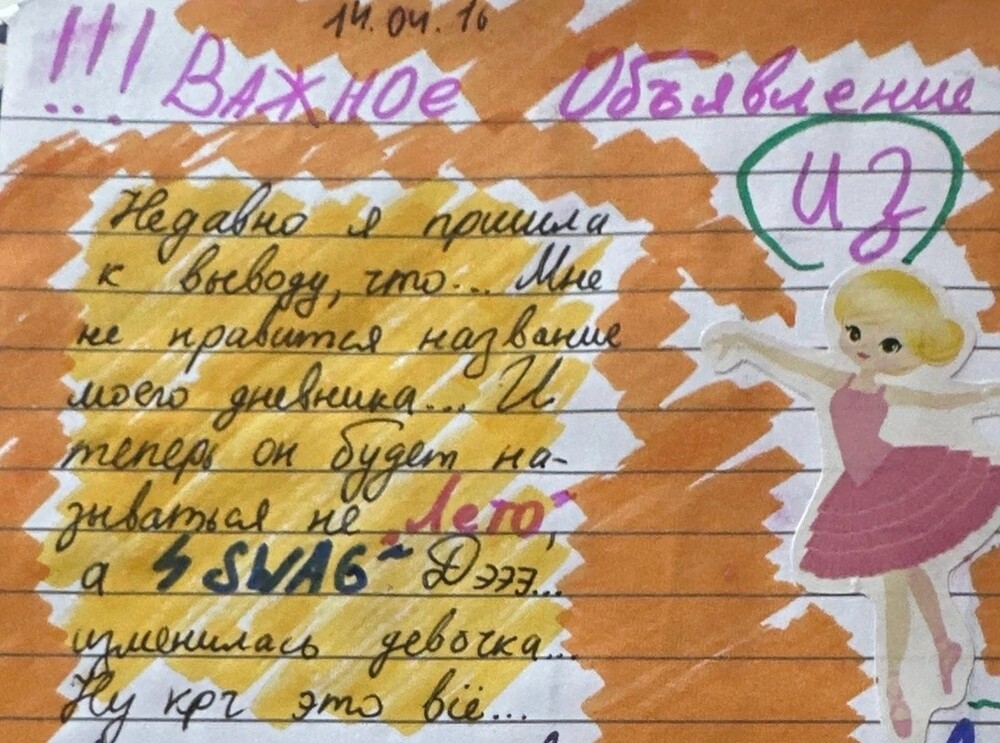 14.04.16
!!! Важное Объявление
ИЗ
Недавно я пришла
к выводу, что... Мне
не нравится название
моего дневника... И
теперь он будет на-
зываться не "Лето",
а "SWAG" Дэээ...
изменилась девочка...
Ну крч это всё...